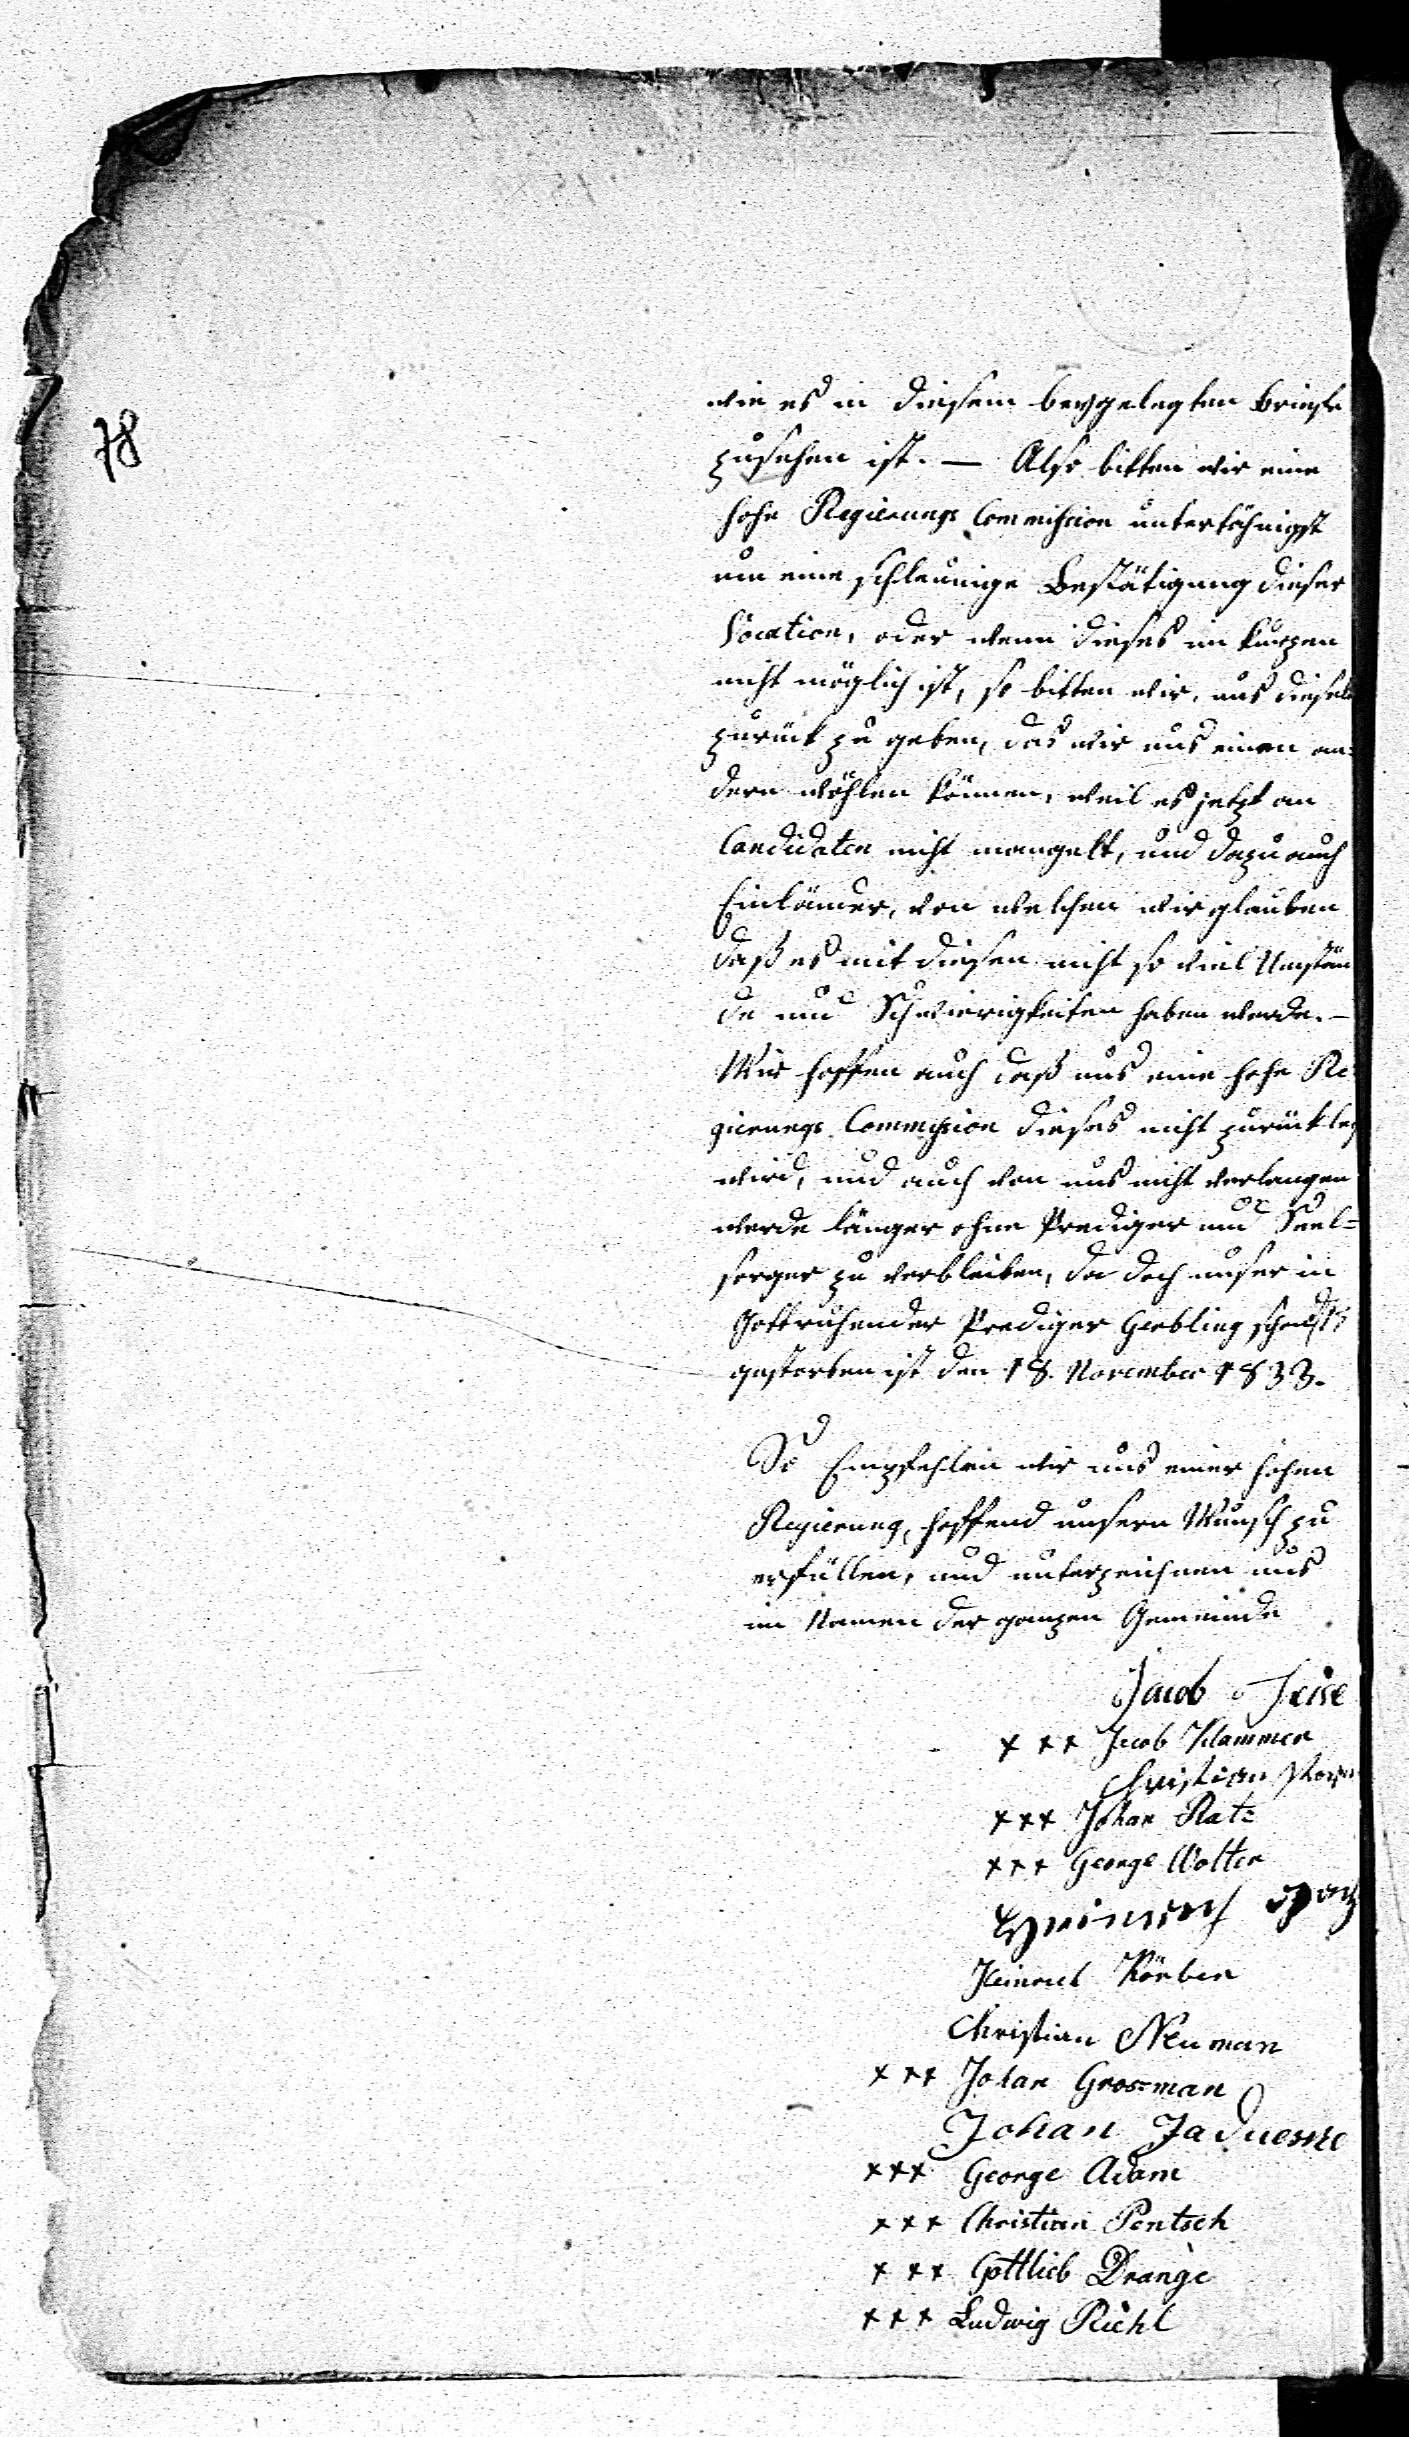 78
wie es in diesem beygelegten Briefe
zusehen ist. — Also bitten wir eine
hohe Regierungs Commihsion unterthänigst
um eine schleunige Bestätigung dieser
Vocation, oder wenn dieses im kurzen
nicht möglich ist, so bitten wir, uns diesel
zurück zu geben, das wir uns einen an:
dern wöhlen können, weil es jetzt an
Candidaten nicht mangelt, und dazu auch
Einländer, von welchen wir glauben
daß es mit diesen nicht so viel Umstän
de und Schwierigkeiten haben werde. —
Wir hoffen auch daß uns eine hohe Re:
gierungs Commission dieses nicht zurückleg
wird, und auch von uns nicht verlangen
werde länger ohne Prediger und Seel=
sorger zu verbleiben, da doch unser in
Gottruhender Prediger Gerbling schon
gestorben ist den 18. November 1833.
So Empfehlen wir uns einer hohen
Regierung, hoffend unsern Wunsch zu
erfüllen, und unterzeichnen uns
im Namen der ganzen Gemeinde
Jacob
+++ Jacob Klammer
Christian
+++ Johan Ratz
+++ George Wolter
Heinrich
Heinrich Körber
Christian Neuman
+++ Johan Grosman
Johan Jaduesske
+++ George Adam
+++ Christian Pentsch
+++ Gottlieb Drange
+++ Ludwig Riehl